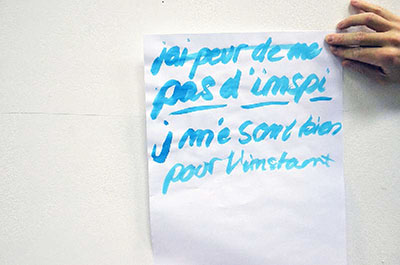 jai peur de me
pas d'inspi
j m'e sent bien
pour l'instant